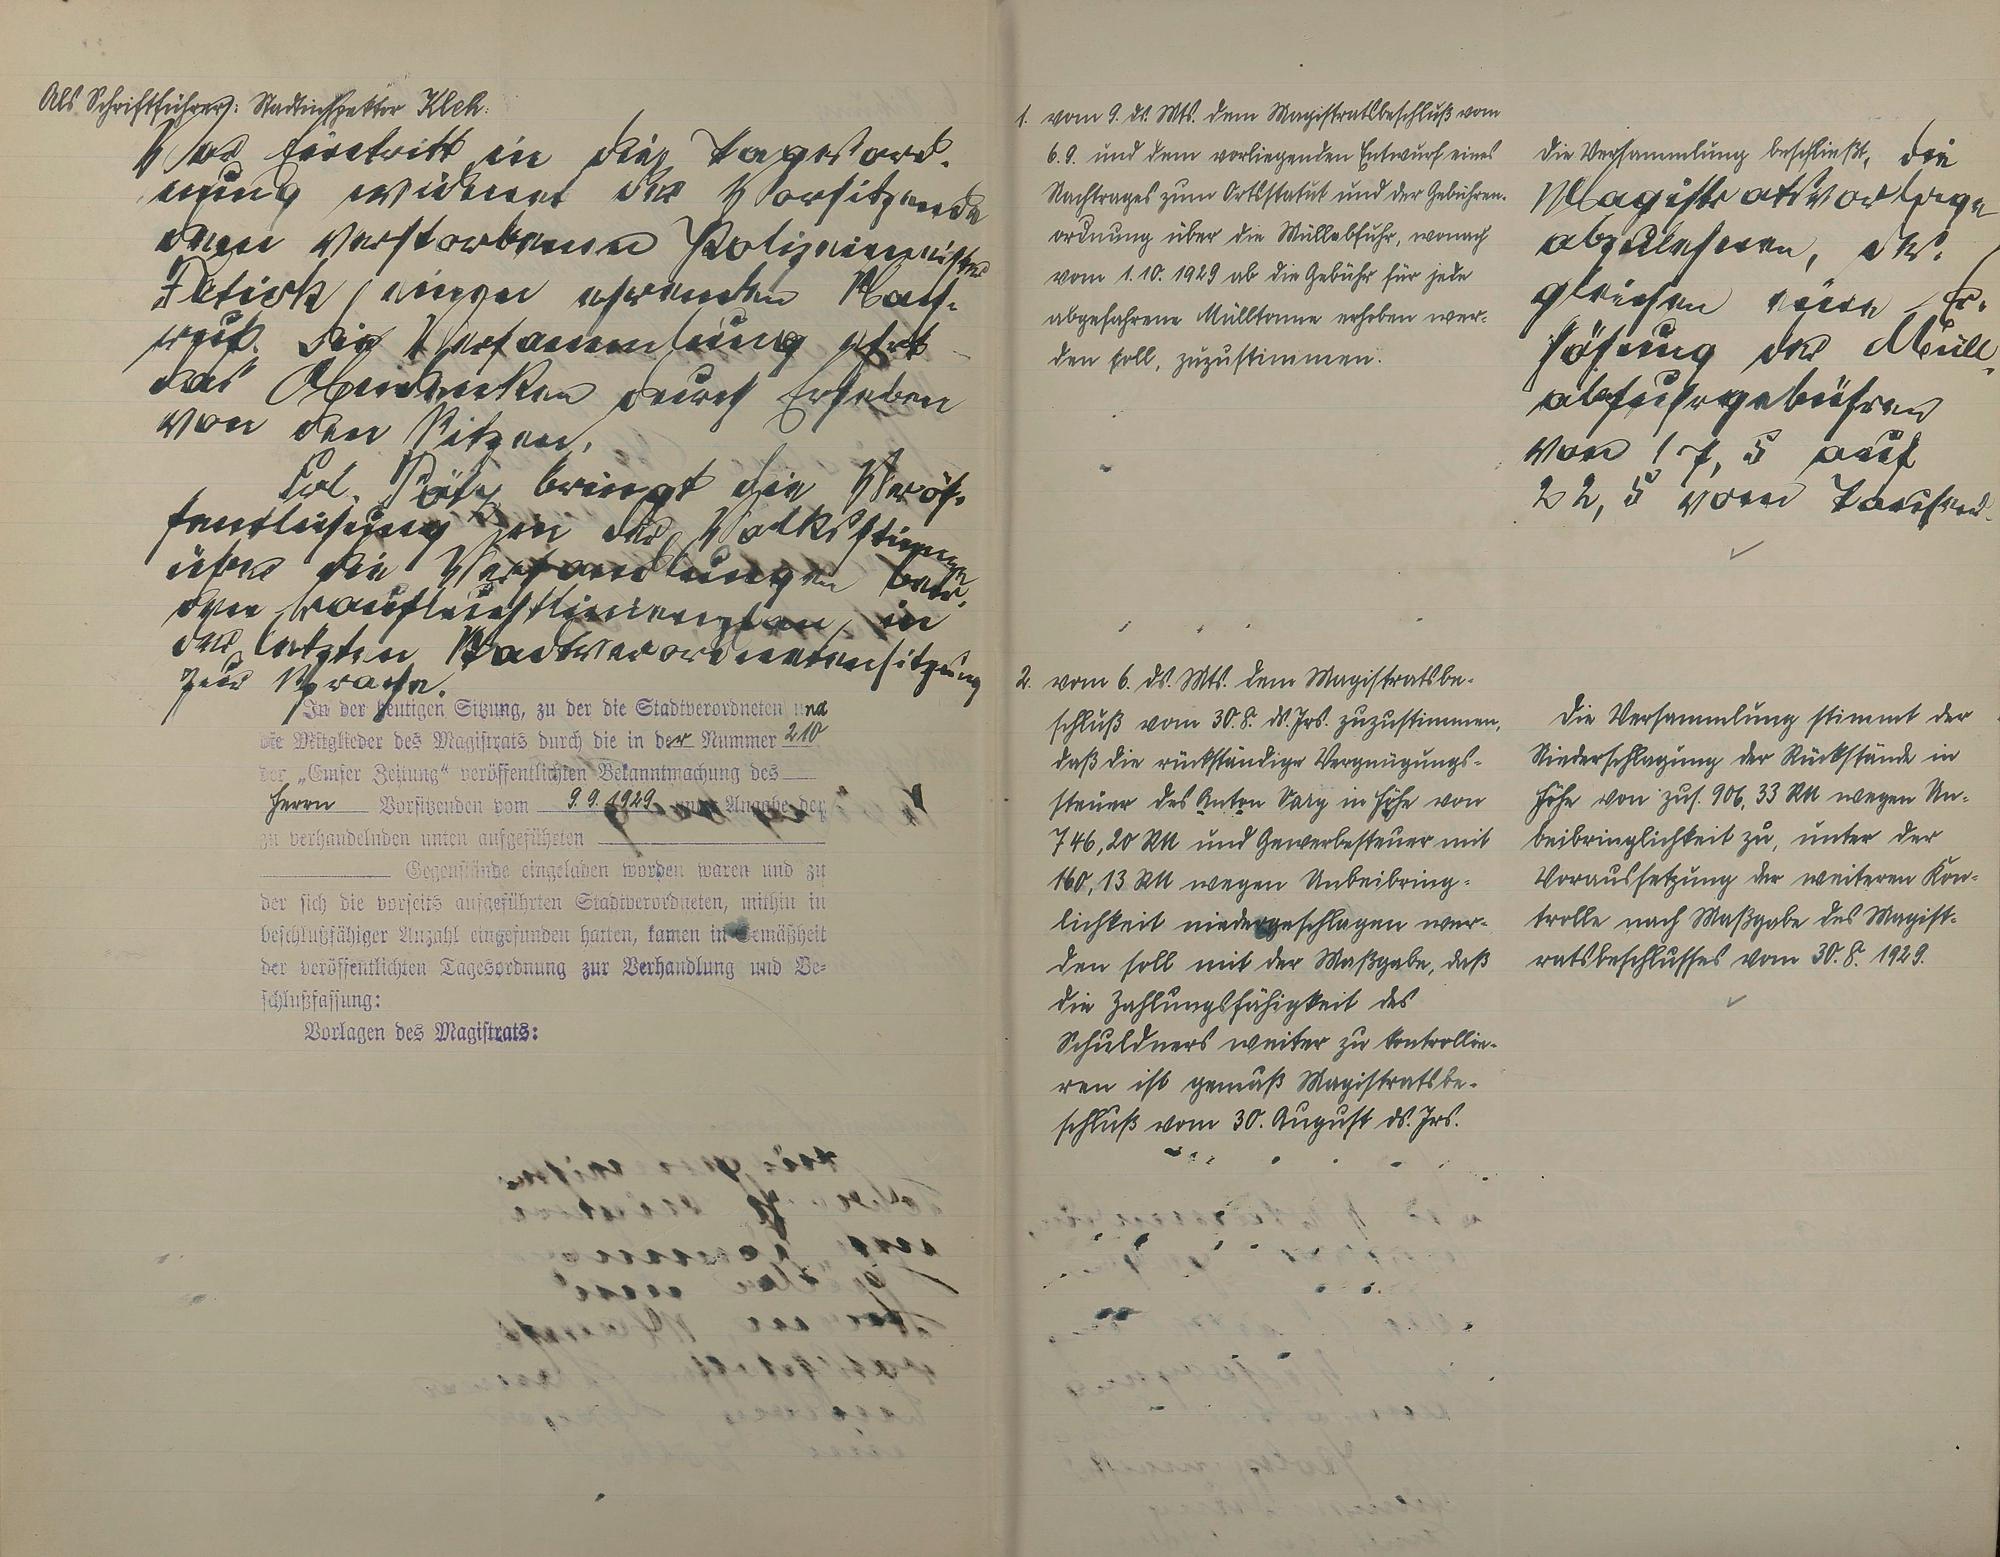 Als Schriftführer: Stadtinspektor Kleh.
Vor Eintritt in die Tagesord-
nung widmet der Vorsitzende
dem verstorbenen Polizeimeister
einen ehrenden Nach-
ruf. Die Versammlung ehrt
das Andenken durch Erheben
von den Sitzen.
Stv. bringt die Veröf-
fentlichung in der Volksstimme
über die Verhandlungen betr.
den Baufluchtlinienplan in
der letzten Stadtverordnetensitzung
zur Sprache.
In der heutigen Sitzung, zu der die Stadtverordneten und
die Mitglieder des Magistrats durch die in der Nummer 210
der „Emser Zeitung“ veröffentlichten Bekanntmachung des
Herrn Vorsitzenden vom 9.9.1929 unter Angabe der
zu verhandelnden unten aufgeführten
Gegenstände eingeladen worden waren und zu
der sich die vorseits aufgeführten Stadtverordneten, mithin in
beschlußfähiger Anzahl eingefunden hatten, kamen in Gemäßheit
der veröffentlichten Tagesordnung zur Verhandlung und Be-
schlußfassung:
Vorlagen des Magistrats:
1. vom 9. ds. Mts. dem Magistratsbeschluß vom
6.9. und dem vorliegenden Entwurf eines
Nachtrages zum Ortsstatut und der Gebühren-
ordnung über die Müllabfuhr, wonach
vom 1.10.1929 ab die Gebühr für jede
abgefahrene Mülltonne erhoben wer-
den soll, zuzustimmen.
Die Versammlung beschließt, die
Magistratsvorlage
abzulehnen, des-
gleichen eine Er-
höhung der Müll-
abfuhrgebühren
von 17,5 auf
22,5 vom Tausend.
2. vom 6. ds. Mts. dem Magistratsbe-
schluß vom 30.8. ds. Jrs. zuzustimmen,
daß die rückständige Vergnügungs-
steuer des Anton Sarg in Höhe von
746,20 RM und Gewerbesteuer mit
160,13 RM wegen Unbeibring-
lichkeit niedergeschlagen wer-
den soll mit der Maßgabe, daß
die Zahlungsfähigkeit des
Schuldners weiter zu kontrollie-
ren ist gemäß Magistratsbe-
schluß vom 30. August ds. Jrs.
Die Versammlung stimmt der
Niederschlagung der Rückstände in
Höhe von zus. 906,33 RM wegen Un-
beibringlichkeit zu, unter der
Voraussetzung der weiteren Kon-
trolle nach Maßgabe des Magist-
ratsbeschlusses vom 30.8.1929.